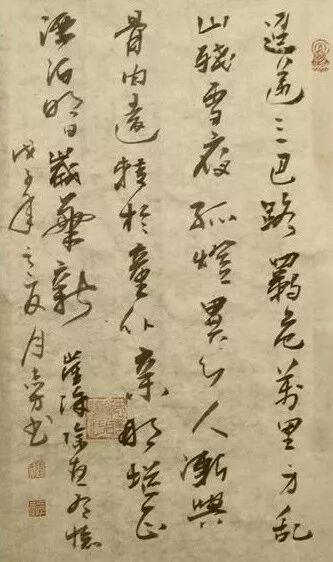 迢遞三巴路羈危萬里身乱
山殘雪夜孤燈異鄉人漸與
骨肉遠轉於童仆亲那堪正
漂泊明日歲華新 崔塗除夜有懷
戊子年之夏月书